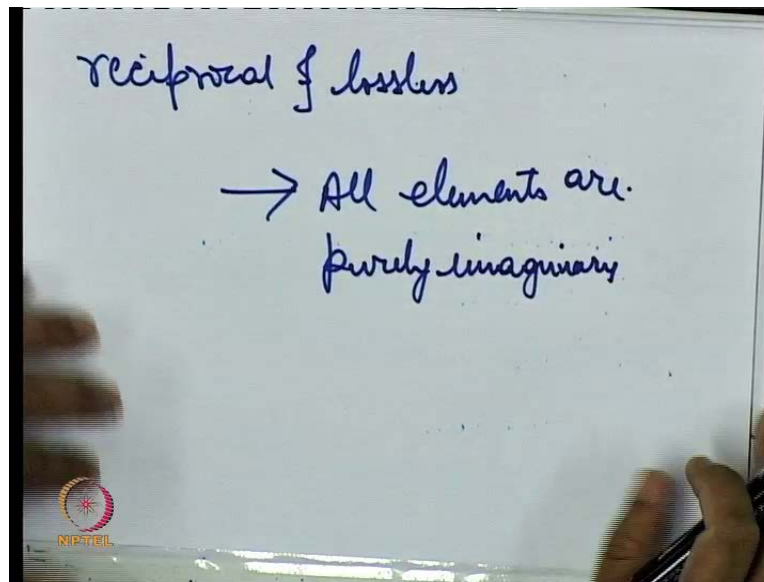 reciprocal & lossless
→ All elements are.
purely imaginary
NPTEL